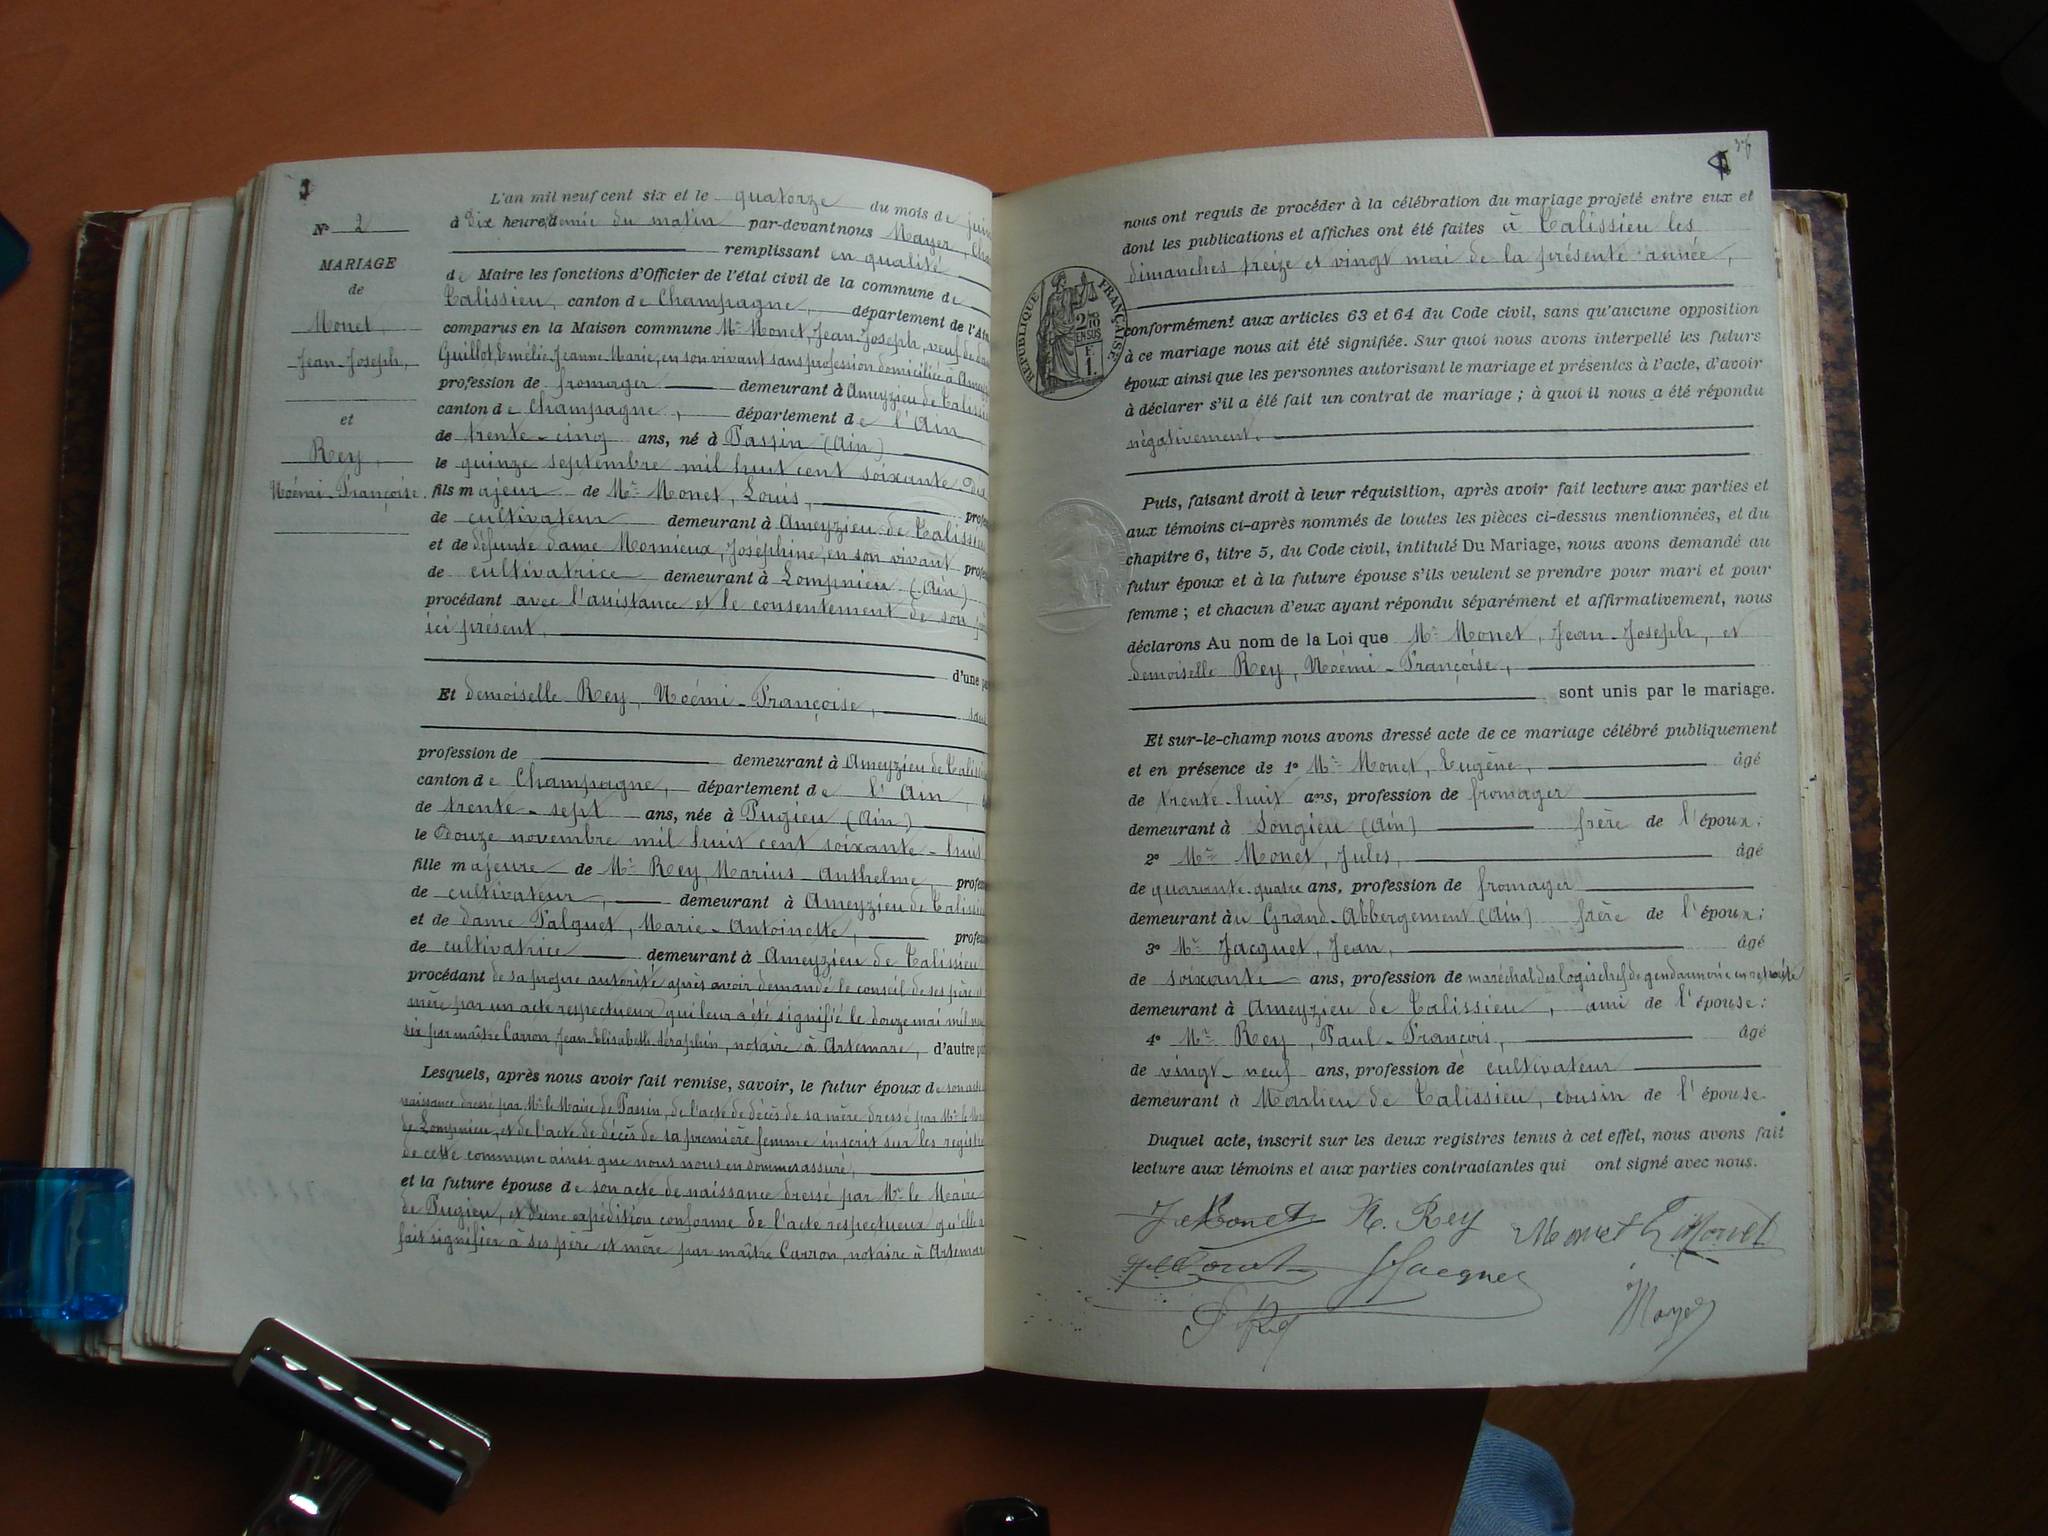 L'an mil neuf cent six et le quatorze du mois de juin
Nº 2
à dix heures demie du matin par-devant nous Mayer,
remplissant en qualité
MARIAGE
de Maire les fonctions d'Officier de l'état civil de la commune de
de
Talissieu, canton de Champagne, département de l'Ain
Monet,
comparus en la Maison commune Mr Monet, Jean-Joseph, veuf de
Jean-Joseph,
Guillot, Emélie-Jeanne-Marie, en son vivant sans profession domiciliée à
profession de fromager demeurant à Ameyzieu de
et
canton de Champagne, département de l'Ain
Rey,
de trente-cinq ans, né à Passin (Ain)
Noémi-Françoise.
le quinze septembre mil huit cent soixante-dix
fils majeur de Mr Monet, Louis,
de cultivateur demeurant à Ameyzieu de Talissieu
et de défunte dame Mornieux, Joséphine, en son vivant
de cultivatrice demeurant à Lompnieu (Ain)
procédant avec l'assistance et le consentement de son
ici présent,
d'une
Et demoiselle Rey, Noémi-Françoise,
profession de demeurant à Ameyzieu de
canton de Champagne, département de l'Ain,
de trente-sept ans, née à Pugieu (Ain)
le douze novembre mil huit cent soixante-huit
fille majeure de Mr Rey, Marius-Anthelme
de cultivateur, demeurant à Ameyzieu de Talissieu
et de dame Falquet, Marie-Antoinette,
de cultivatrice demeurant à Ameyzieu de Talissieu
procédant de sa propre autorité après avoir demandé le conseil de ses père et
mère par un acte respectueux qui leur a été signifié le douze mai mil
six par maître Carron, Jean-Elisabeth-Séraphin, notaire à Artemare, d'autre
Lesquels, après nous avoir fait remise, savoir, le futur époux de son acte
naissance dressé par Mr le Maire de Passin, de l'acte de décès de sa mère dressé par Mr le
de Lompnieu, et de l'acte de décès de sa première femme inscrit sur les
de cette commune ainsi que nous nous en sommes assuré,
et la future épouse de son acte de naissance dressé par Mr le Maire
de Pugieu, et d'une expédition conforme de l'acte respectueux qu'elle a
fait signifier à ses père et mère par maître Carron, notaire à Artemare
nous ont requis de procéder à la célébration du mariage projeté entre eux et
dont les publications et affiches ont été faites à Talissieu les
dimanches treize et vingt mai de la présente année,
RÉPUBLIQUE FRANÇAISE
2/10 EN SUS
F. 1.
conformément aux articles 63 et 64 du Code civil, sans qu'aucune opposition
à ce mariage nous ait été signifiée. Sur quoi nous avons interpellé les futurs
époux ainsi que les personnes autorisant le mariage et présentes à l'acte, d'avoir
à déclarer s'il a été fait un contrat de mariage ; à quoi il nous a été répondu
négativement.
Puis, faisant droit à leur réquisition, après avoir fait lecture aux parties et
aux témoins ci-après nommés de toutes les pièces ci-dessus mentionnées, et du
chapitre 6, titre 5, du Code civil, intitulé Du Mariage, nous avons demandé au
futur époux et à la future épouse s'ils veulent se prendre pour mari et pour
femme ; et chacun d'eux ayant répondu séparément et affirmativement, nous
déclarons Au nom de la Loi que Mr Monet, Jean-Joseph, et
demoiselle Rey, Noémi-Françoise,
sont unis par le mariage.
Et sur-le-champ nous avons dressé acte de ce mariage célébré publiquement
et en présence de 1º Mr Monet, Eugène, âgé
de trente-huit ans, profession de fromager
demeurant à Songieu (Ain) frère de l'époux;
2º Mr Monet, Jules, âgé
de quarante-quatre ans, profession de fromager
demeurant au Grand-Abbergement (Ain) frère de l'époux;
3º Mr Jacquet, Jean, âgé
de soixante ans, profession de maréchal des logis chef de gendarmerie en retraite
demeurant à Ameyzieu de Talissieu, ami de l'épouse;
4º Mr Rey, Paul-François, âgé
de vingt-neuf ans, profession de cultivateur
demeurant à Marlieu de Talissieu, cousin de l'épouse.
Duquel acte, inscrit sur les deux registres tenus à cet effet, nous avons fait
lecture aux témoins et aux parties contractantes qui ont signé avec nous.
J Monet N. Rey Monet E Monet
Monet Jacquet
P Rey Mayer